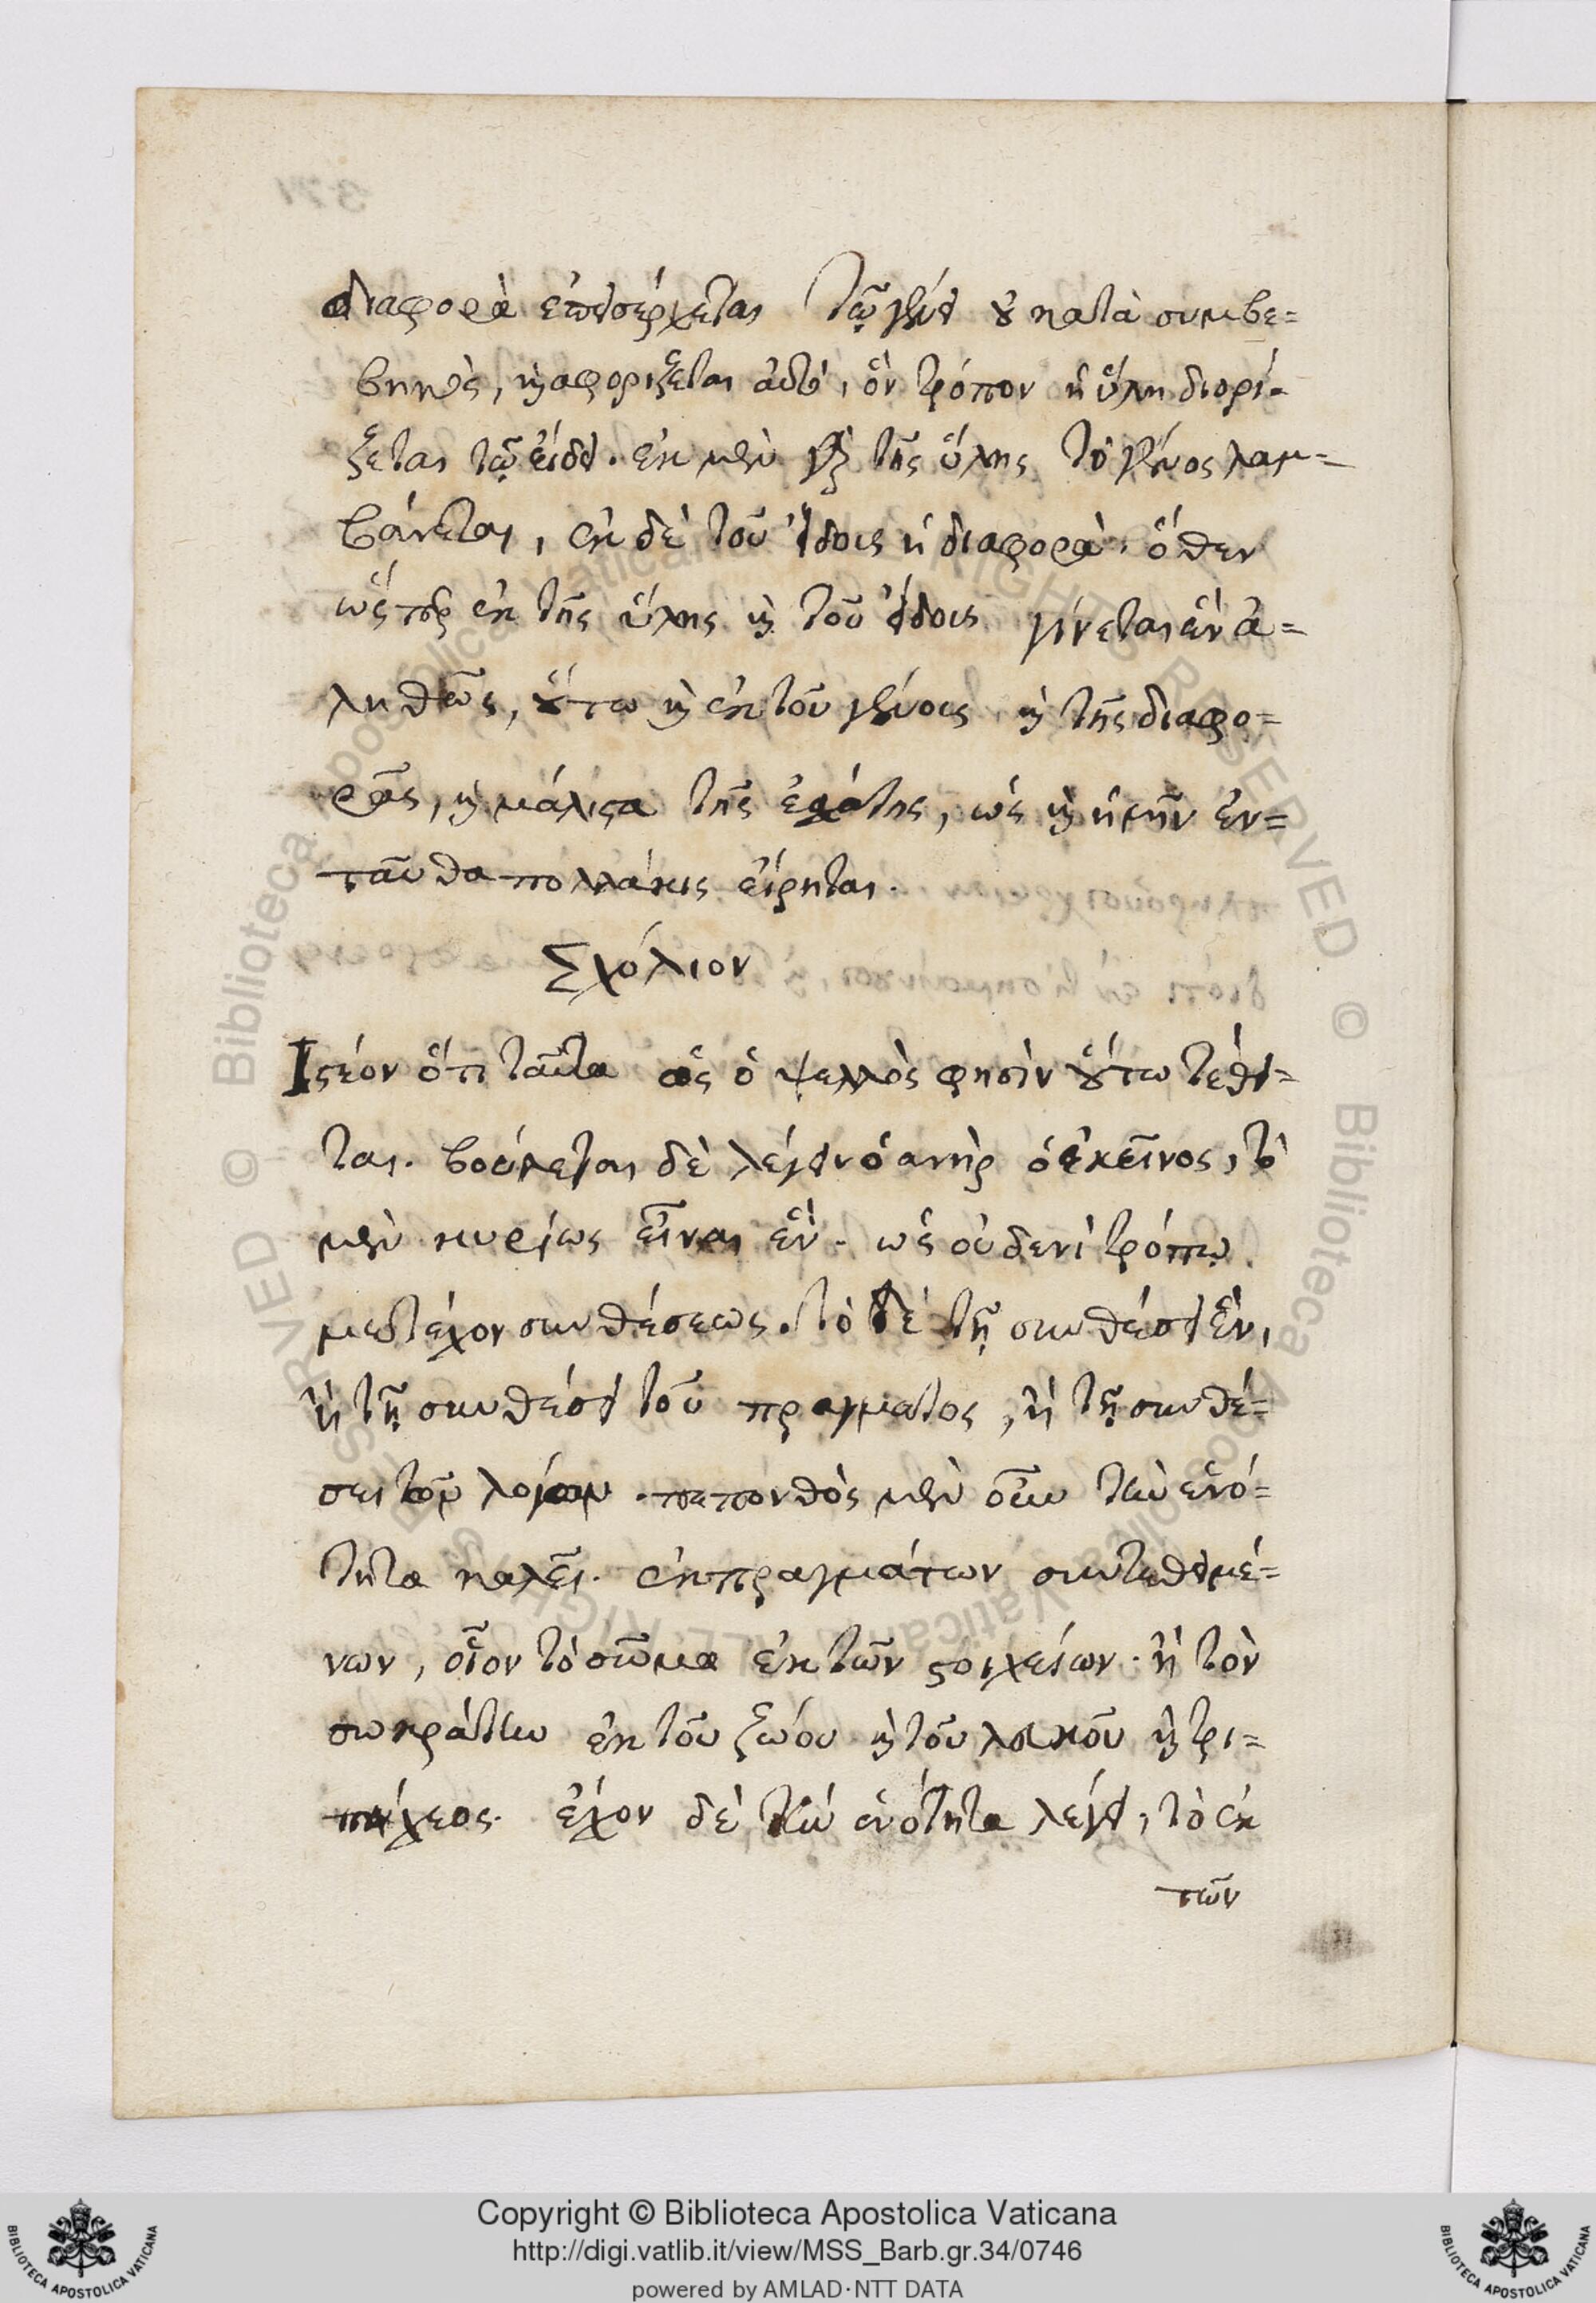 διαφορὰ ἐπεισέρχεται τῷ γένει οὐ κατὰ συμβε=
βηκὸς, καὶ ἀφορίζεται αὐτό, ὃν τρόπον ἡ ὕλη διορί=
ζεται τῷ εἴδει. ἐκ μὲν γὰρ τῆς ὕλης τὸ γένος λαμ=
βάνεται, ἐκ δὲ τοῦ εἴδους ἡ διαφορὰ. ὅθεν
ὥσπερ ἐκ τῆς ὕλης καὶ τοῦ εἴδους γίνεται ἓν ἀ=
ληθῶς, οὕτω καὶ ἐκ τοῦ γένους καὶ τῆς διαφο=
ρᾶς, καὶ μάλιστα τῆς ἐσχάτης, ὡς καὶ ἡμῖν ἐν=
ταῦθα πολλάκις εἴρηται.
Σχόλιον
Ἰστέον ὅτι ταῦτα ὡς ὁ ψελλὸς φησὶν οὕτω τέθει=
ται. βούλεται δὲ λέγειν ὁ ἀνὴρ ὁ ἐκεῖνος, τὸ
μὲν κυρίως εἶναι ἓν. ὡς οὐδενὶ τρόπῳ
μετέχον συνθέσεως. τὸ δὲ τῇ συνθέσει ἓν,
ἢ τῇ συνθέσει τοῦ πραγματος, ἢ τῇ συνθέ=
σει τῶν λόγων. πεπονθὸς μὲν οὖν τὴν ἑνό=
τητα καλεῖ. ἐκ πραγμάτων συντεθειμέ=
νων, οἷον τὸ σῶμα ἐκ τῶν στοιχείων. ἢ τὸν
σωκράτην ἐκ τοῦ ζώου καὶ τοῦ λευκοῦ καὶ τρι=
πήχεος. ἔχον δὲ τὴν ἑνότητα λέγει, τὸ ἐκ
τῶν
Copyright © Biblioteca Apostolica Vaticana
http://digi.vatlib.it/view/MSS_Barb.gr.34/0746
powered by AMLAD·NTT DATA